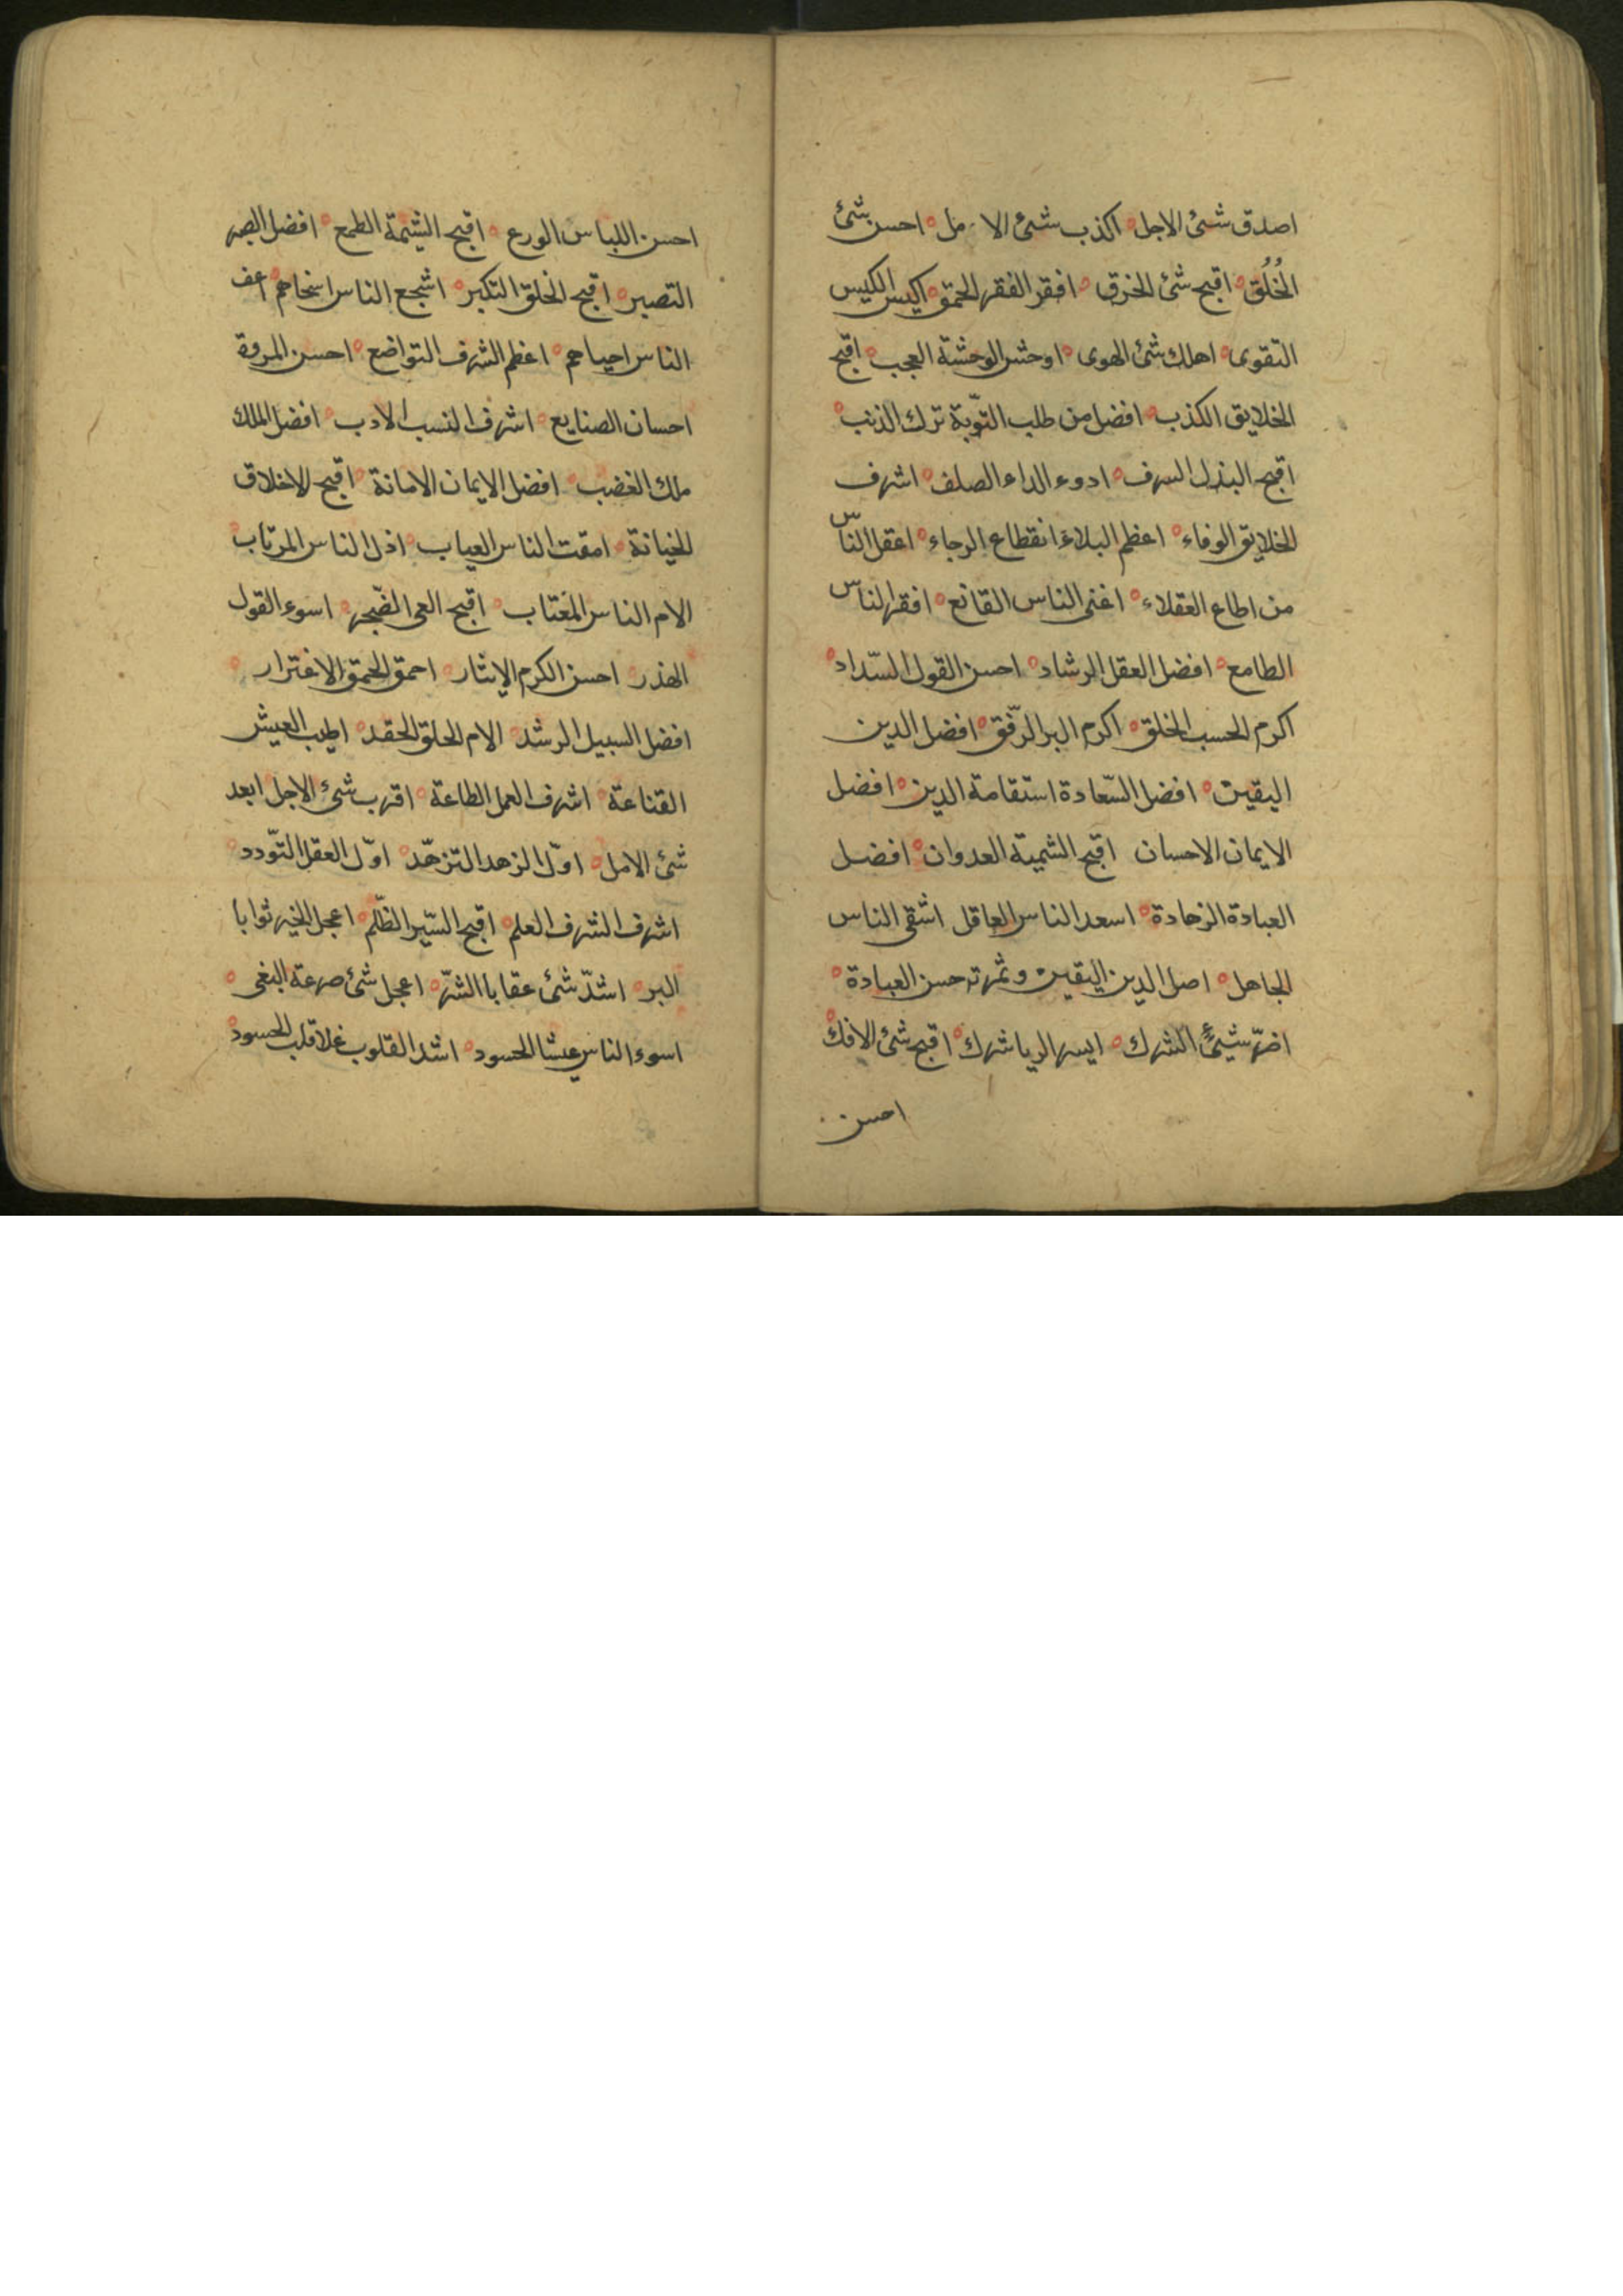 اصدق شئ الاجل اكذب شئ الا مل احسن شئ
الخُلُق اقبح شئ الخرق افقر الفقر الحمق اكيس الكيس
التقوى اهلك شئ الهوى اوحش الوحشة العجب اقبح
الخلايق الكذب افضل من طلب التّوبة ترك الذنب
اقبح البذل السرف ادوء الداء الصلف اشرف
الخلايق الوفاء اعظم البلاء انقطاع الرجاء اعقل الناس
من اطاع العقلاء اغنى الناس القانع افقر الناس
الطامع افضل العقل الرشاد احسن القول السّداد
اكرم الحسب الخلق اكرم البر الرّفق افضل الدين
اليقين افضل السّعادة استقامة الدين افضل
الايمان الاحسان اقبح الشمية العدوان افضل
العبادة الزهادة اسعد الناس العاقل اشقى الناس
الجاهل اصل الدين اليقين وثمرته حسن العبادة
اضرّ شيئٍ الشرك ايسر الريا شرك اقبح شئ الافك
احسن
احسن اللباس الورع اقبح الشيمة الطمع افضل الصبر
التصبر اقبح الخلق التكبر اشجع الناس اسخاهم اعف
الناس احياهم اعظم الشرف التواضع احسن المروة
احسان الصنايع اشرف النسب الادب افضل الملك
ملك الغضب افضل الايمان الامانة اقبح الاخلاق
الخيانة امقت الناس العياب اذل الناس المرتاب
الام الناس المغتاب اقبح العى الضّجر اسوء القول
الهذر احسن الكرم الايثار احمق الحمق الاغترار
افضل السبيل الرشد الام الخلق الحقد اطيب العيش
القناعة اشرف العمل الطاعة اقرب شئ الاجل ابعد
شئ الامل اوّل الزهد التزهّد اوّل العقل التّودد
اشرف الشرف العلم اقبح السّير الظّلم اعجل الخير ثوابا
البر اشدّ شئ عقابا الشرّ اعجل شئ صرعة البغى
اسوء الناس عيشا الحسود اشد القلوب غلا قلب الحسود